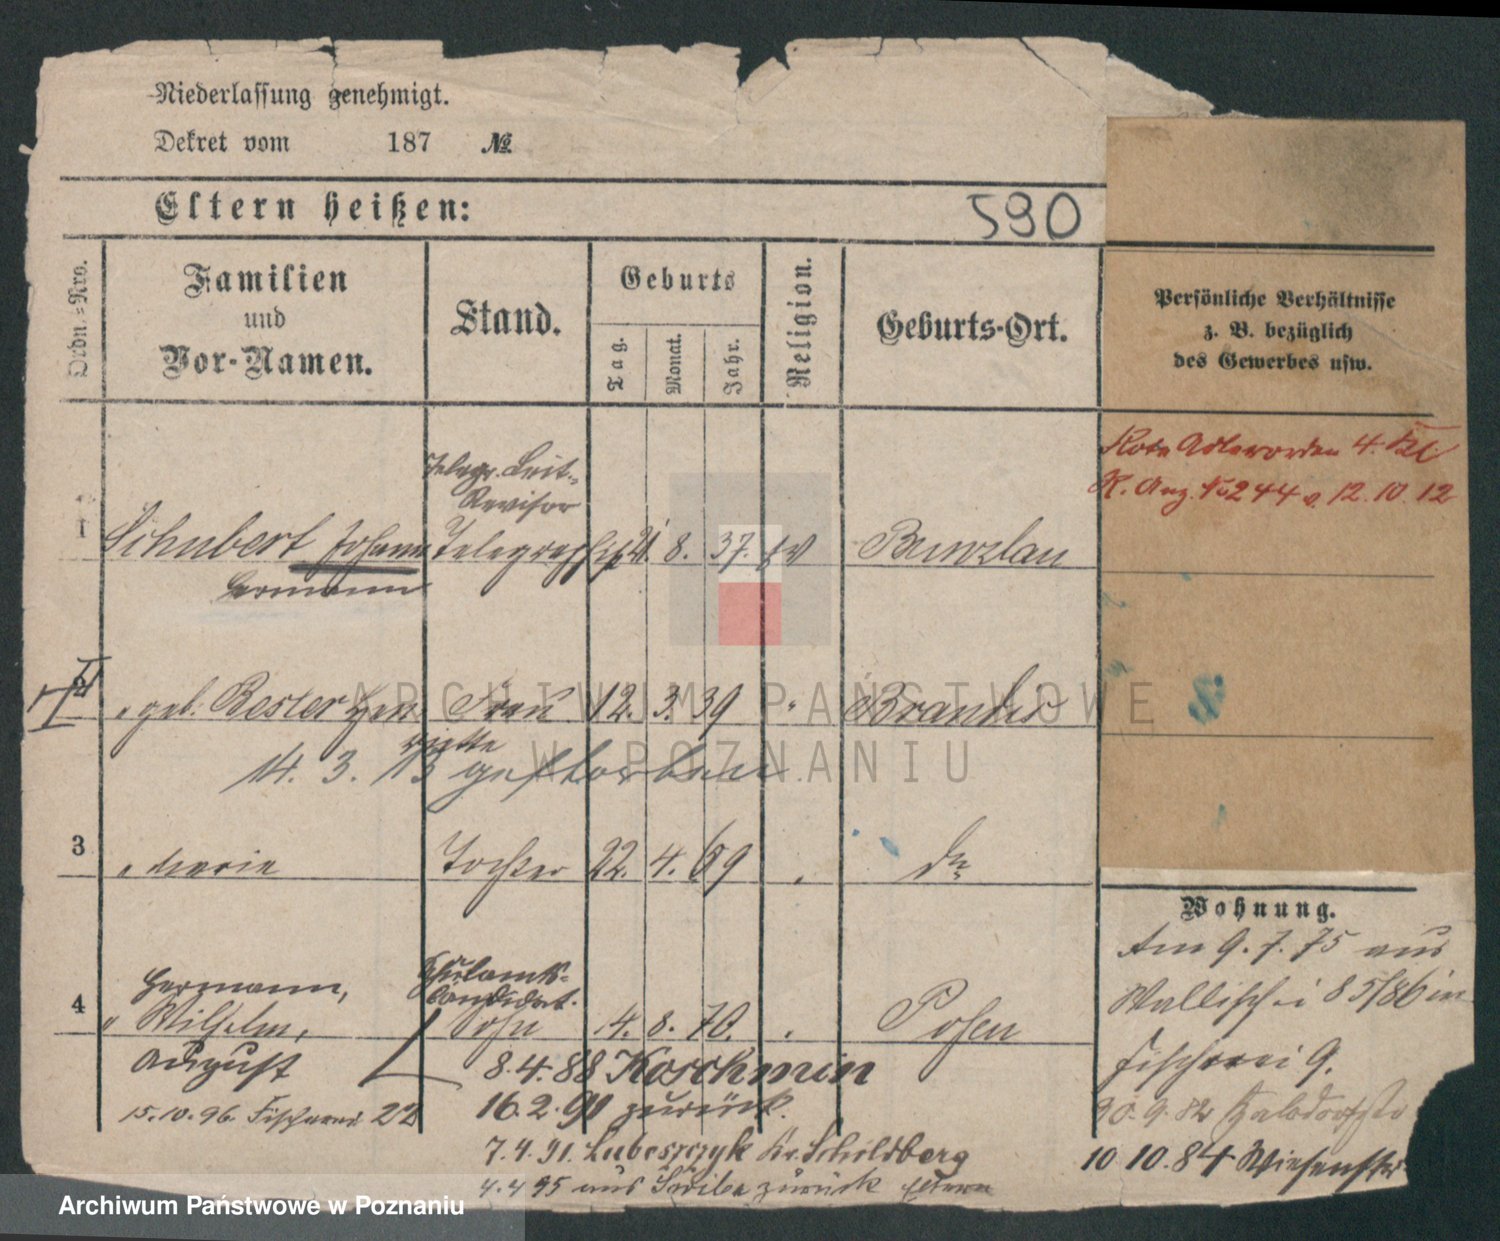 Niederlassung genehmigt.
Dekret vom 187 №
Eltern heißen:
590
Ordn.=Nro.
Familien
und
Vor-Namen.
Stand.
Geburts
Tag.
Monat.
Jahr.
Religion.
Geburts-Ort.
Persönliche Verhältnisse
z. B. bezüglich
des Gewerbes usw.
Rote Adlerorden 4. Kl.
R. Anz. No 244 v. 12. 10. 12
Telegr. Leit.-
Revisor
1 Schubert Johann Telegraphist 21. 8. 37. ev Bunzlau
Hermann
2 " geb. Bester Hen- Frau 12. 3. 39 "
riette
14. 3. 13 gestorben
3 " Marie Tochter 22. 4. 69 " do
Hermann, Schulamts-
candidat.
4 " Wilhelm, Sohn 4. 8. 70. " Posen
August
8. 4. 88 Koschmin
15. 10. 96. Fischerei 22
16. 2. 90 zurück.
7. 4. 91. Kr. Schildberg
4. 4 95 aus zurück
Wohnung.
Am 9. 7. 75 aus
Wallischei 85/86 in
Fischerei 9.
30. 9. 82
10 10. 84 Wiesenstr.
ARCHIWUM PAŃSTWOWE
W POZNANIU
Archiwum Państwowe w Poznaniu